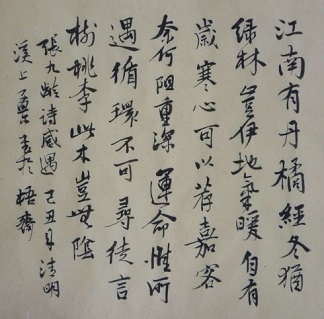 江南有丹橘經冬猶
綠林豈伊地氣暖自有
歲寒心可以荐嘉客
奈何阻重深運命惟所
遇循環不可尋徒言
樹桃李此木豈無陰
張九齡诗感遇 己丑年清明
溪上